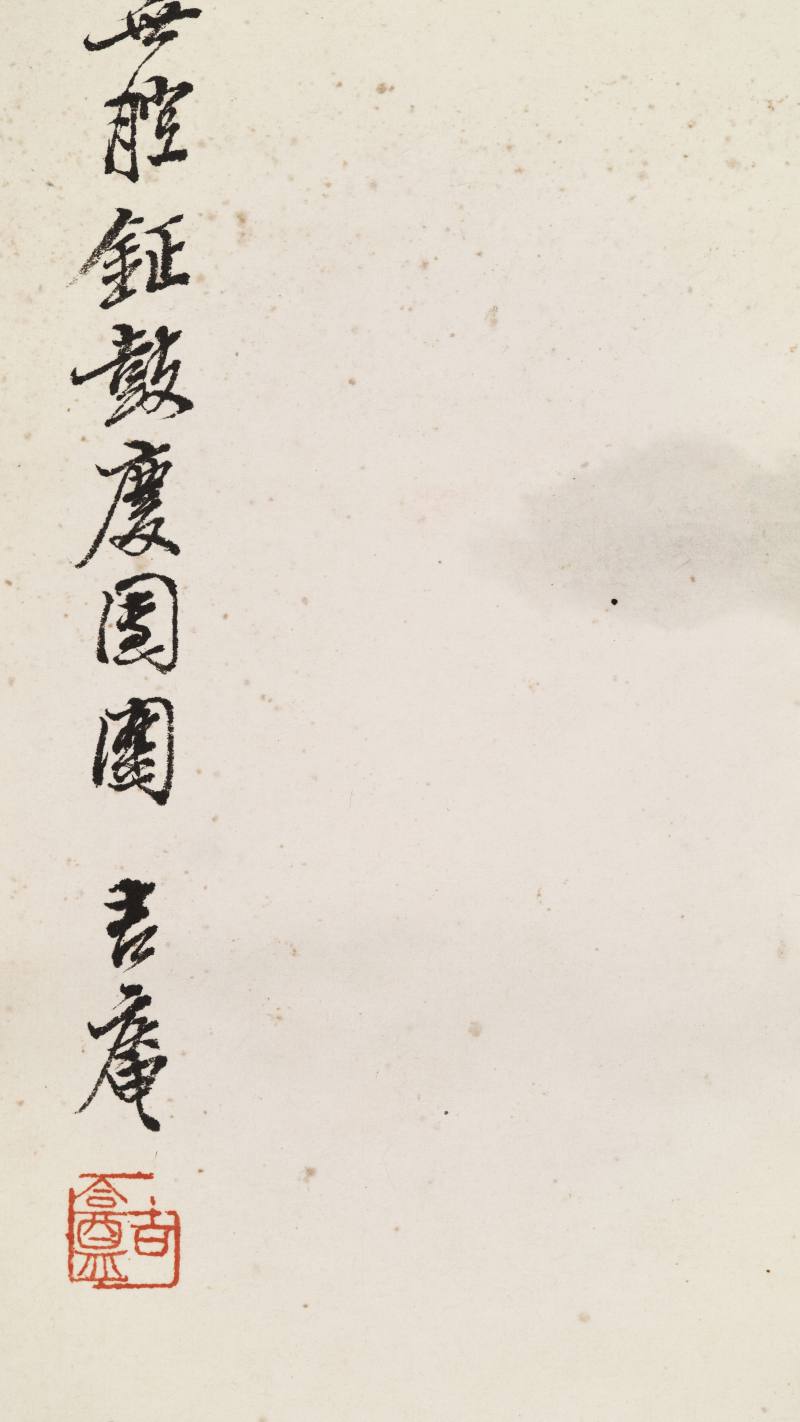 無腔鉦鼓慶團圞 吉庵
吉盦